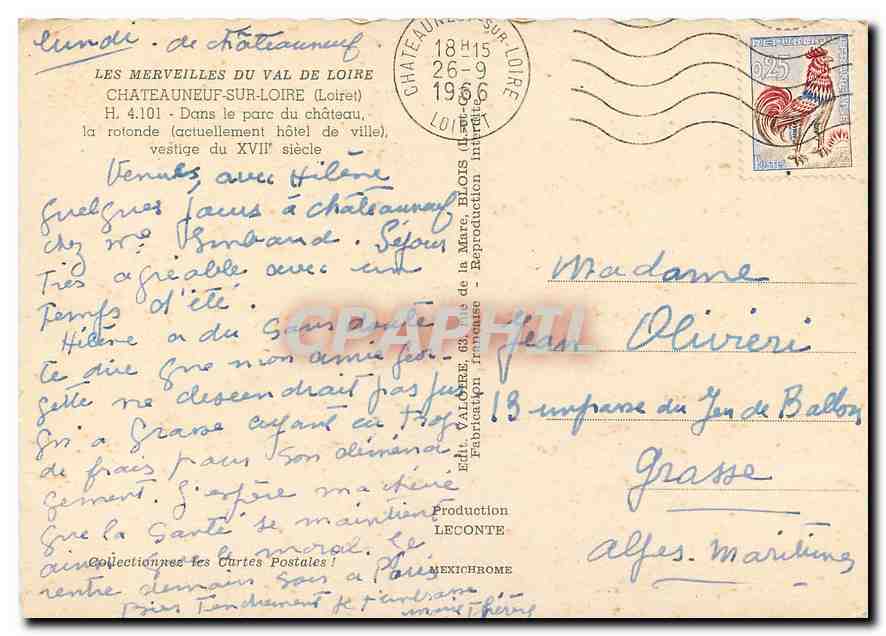 lundi. de châteauneuf
LES MERVEILLES DU VAL DE LOIRE
CHATEAUNEUF-SUR-LOIRE (Loiret)
H. 4.101 - Dans le parc du château,
la rotonde (actuellement hôtel de ville),
vestige du XVIIe siècle
Venues, avec Hélène
quelques jours à châteauneuf
chez Me Imbaud. Séjour
très agréable avec un
temps d'été.
Hélène a du sans doute
te dire que mon amie Geor-
gette ne descendrait pas jus
qu'à Grasse ayant eu trop
de frais pour son déména
gement. J'espère ma chérie
que la santé se maintient
ainsi que le moral. Je
rentre demain soir à Paris
Bien tendrement je t'embrasse
Marie Thérèse
Collectionnez les Cartes Postales !
CHATEAUNEUF-SUR-LOIRE
18H15
26-9
1966
LOIRET
REPUBLIQUE FRANCAISE
0,25
POSTES
Edit. VALOIRE, 63, rue de la Mare, BLOIS (L.-et-C.)
Fabrication française - Reproduction interdite
Production
LECONTE
MEXICHROME
CPAPHIL
Madame
Jean Olivieri
13 impasse du Jeu de Ballon
Grasse
Alpes. Maritimes